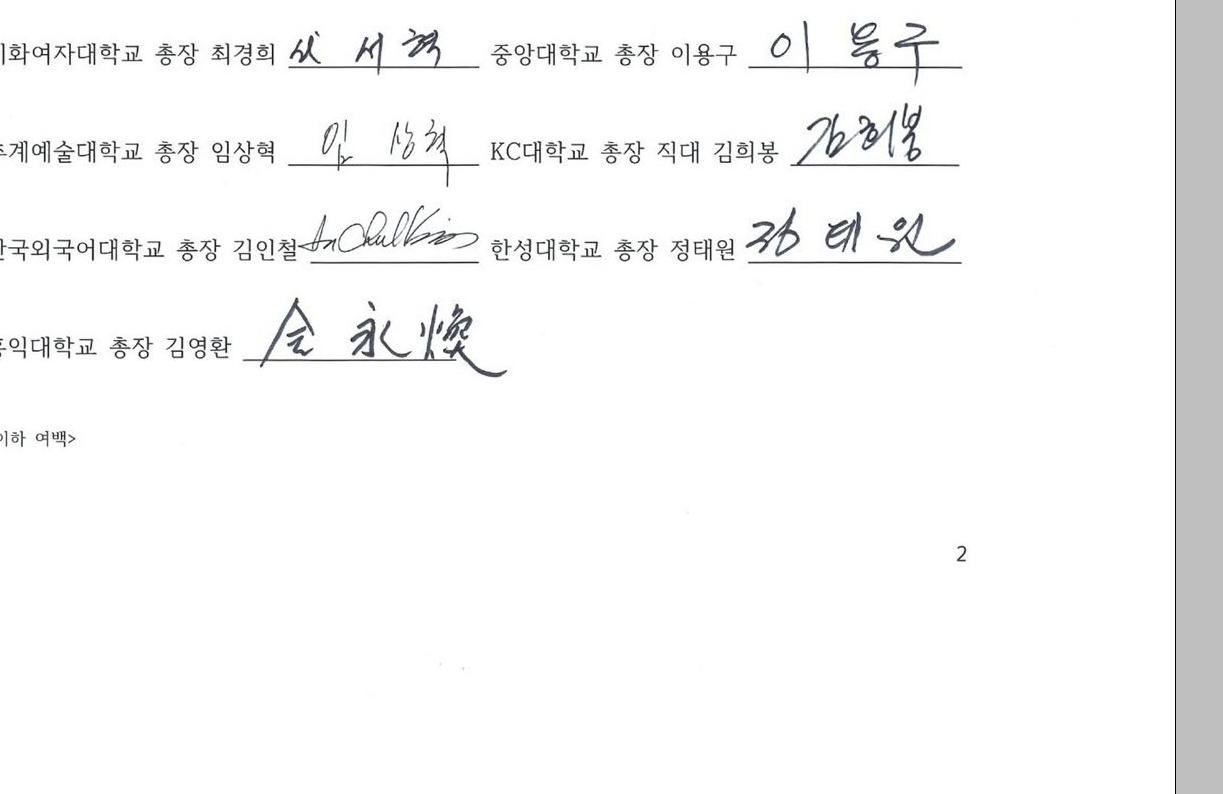 이화여자대학교 총장 최경희 서혁 중앙대학교 총장 이용구 이용구
추계예술대학교 총장 임상혁 임상혁 KC대학교 총장 직대 김희봉 김희봉
한국외국어대학교 총장 김인철 In Chul Kim 한성대학교 총장 정태원 정태원
홍익대학교 총장 김영환 金永煥
이하 여백>
2